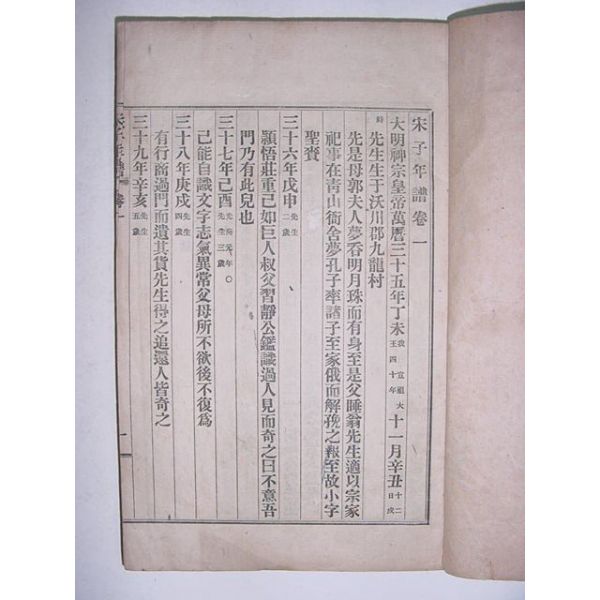 宋子年譜卷一
大明神宗皇帝萬曆三十五年丁未我宣祖大王四十年十一月辛丑十二日戌
時先生生于沃川郡九龍村
先是母郭夫人夢吞明月珠而有身至是父睡翁先生適以宗家
祀事在靑山衙舍夢孔子率諸子至家俄而解㝃之報至故小字
聖賚
三十六年戊申先生二歲
穎悟莊重已如巨人叔父習靜公鑑識過人見而奇之曰不意吾
門乃有此兒也
三十七年己酉光海元年○先生三歲
已能自識文字志氣異常父母所不欲後不復爲
三十八年庚戌先生四歲
有行商過門而遺其貨先生得之追還人皆奇之
三十九年辛亥先生五歲
宋子年譜 卷一
一